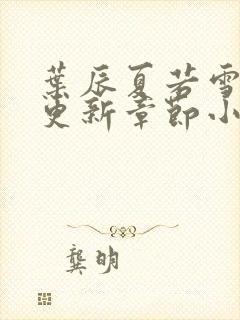 葉辰夏若雪
更新章節小
龔明